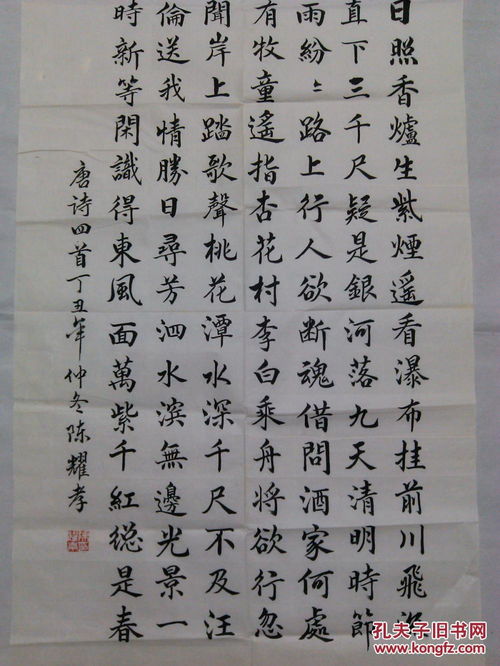 日照香爐生紫煙遙看瀑布挂前川飛流
直下三千尺疑是銀河落九天清明時節
雨紛〻路上行人欲断魂借問酒家何處
有牧童遙指杏花村李白乘舟將欲行忽
聞岸上踏歌聲桃花潭水深千尺不及汪
倫送我情勝日尋芳泗水滨無邊光景一
時新等閑識得東風面萬紫千紅緫是春
唐诗四首丁丑年仲冬陈耀孝
孔夫子旧书网
www.kongfz.com